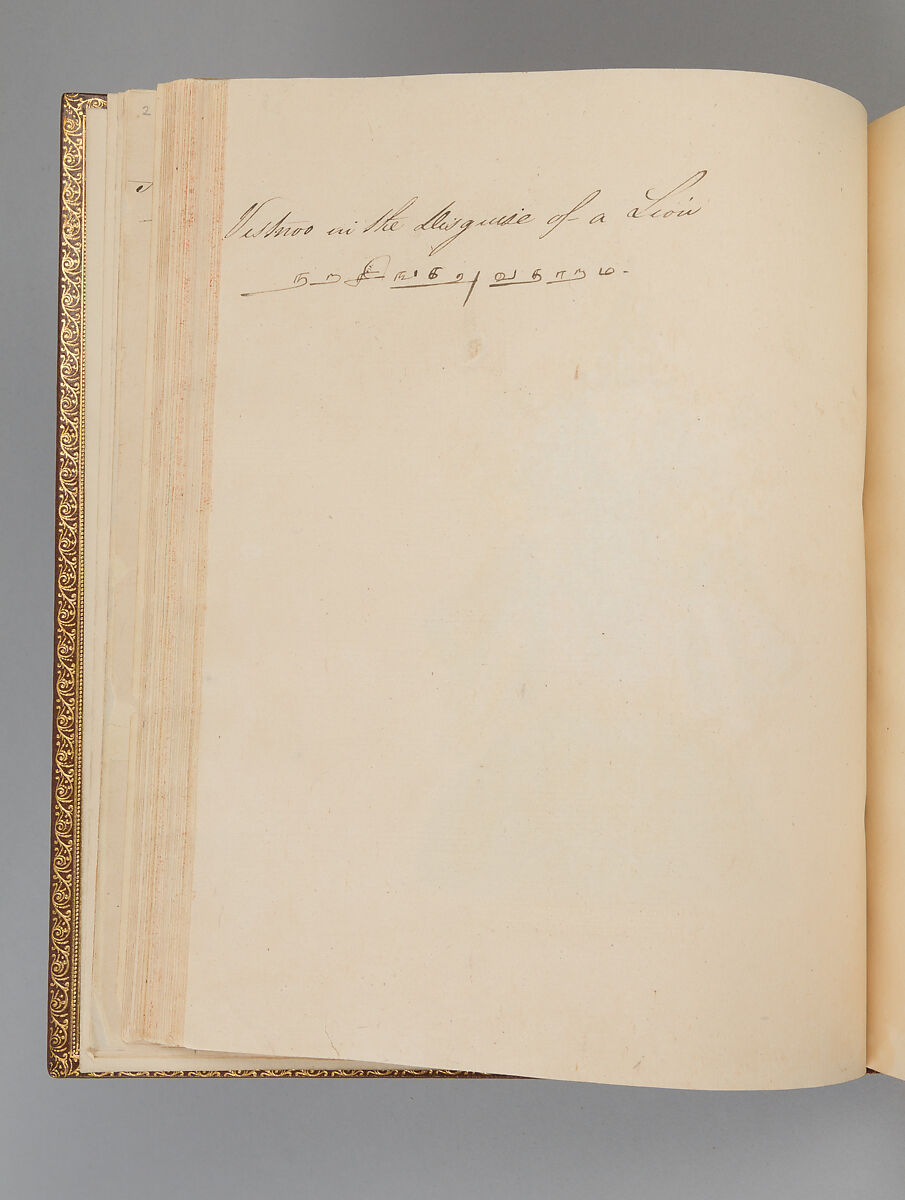 2
Vistnoo in the Disguise of a Lion
நரசிங்க அவதாரம் -